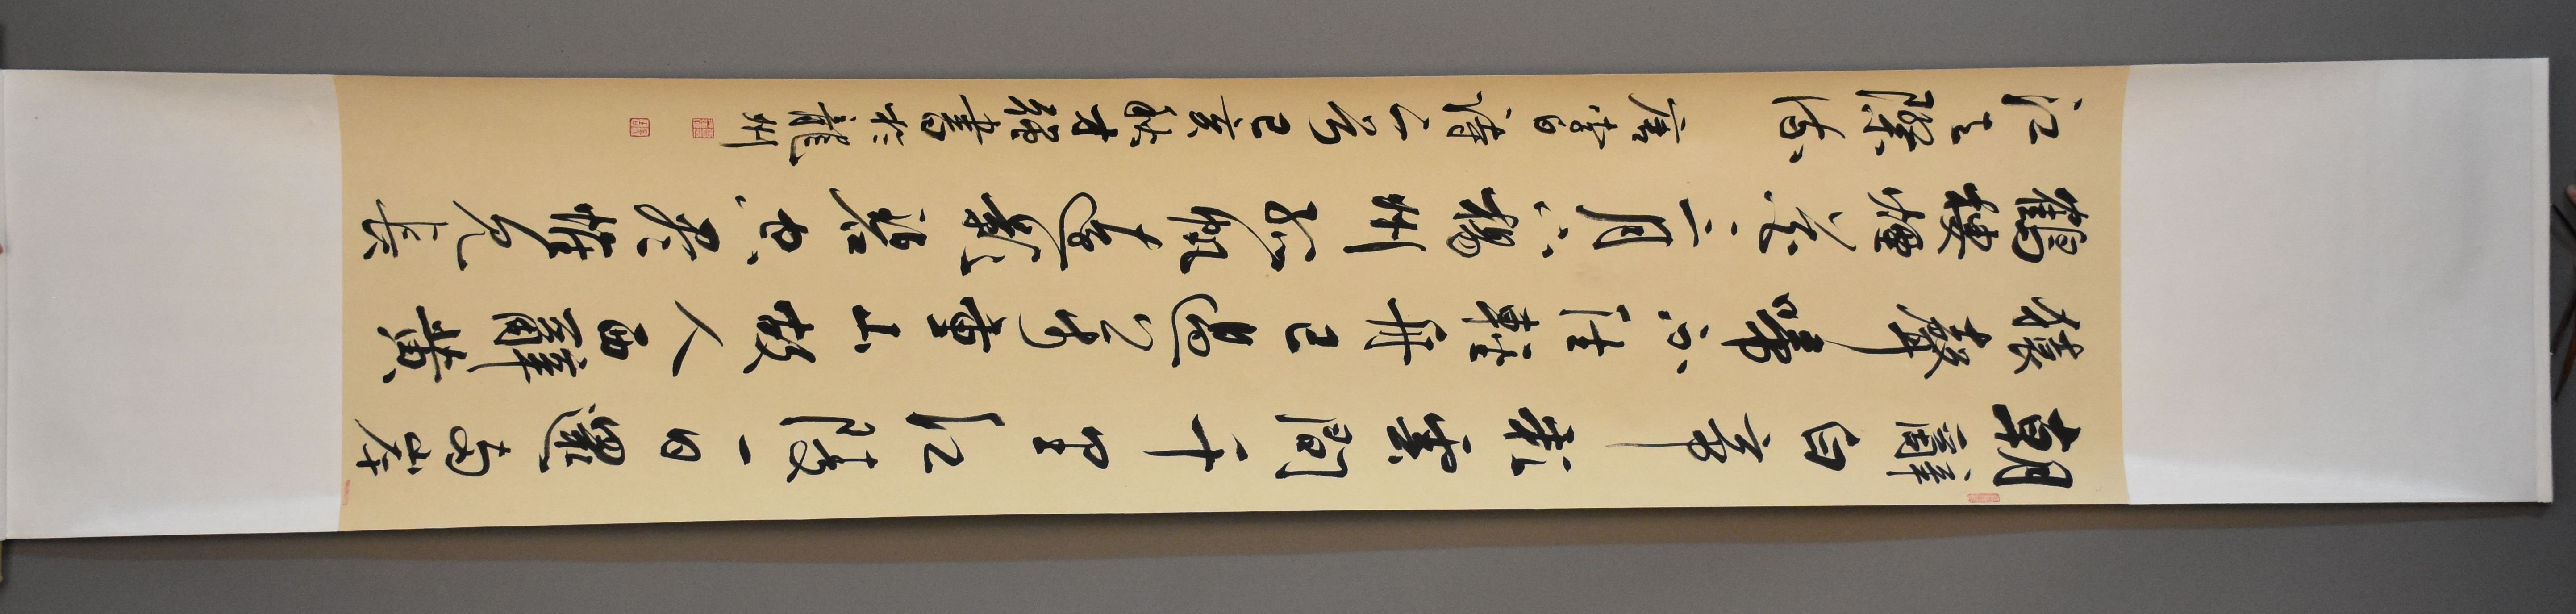 朝辭白帝彩雲間千里江陵一日還兩岸
猿聲啼不住輕舟已過萬重山故人西辭黃
鶴樓煙花三月下揚州孤帆遠影碧空盡惟見長
江天際流 唐李白詩二首己亥秋才書於龍州